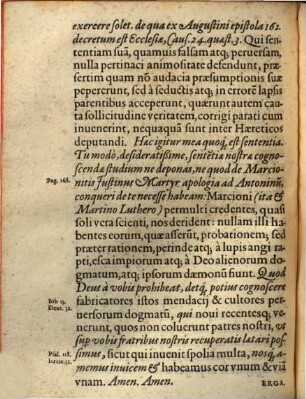 exercere solet. de qua ex Augustini epistola 162.
decretum est Ecclesiæ, Cauſ. 24. quæst. 3. Qui sen-
tentiam suã, quamuis falsam atq; peruersam,
nulla pertinaci animositate defendunt, præ-
sertim quam nõ audacia præsumptionis suæ
pepererunt, sed à seductis atq; in errorē lapsis
parentibus acceperunt, quærunt autem cau-
ta sollicitudine veritatem, corrigi parati cum
inuenerint, nequaquã sunt inter Hæreticos
deputandi. Hac igitur mea quoq; est sententia.
Tu modò, desideratissime, sentētia nostra cogno-
scendæ studium ne deponas, ne quod de Marcio-
Pag. 168. nitis Iustinus Martyr apologia ad Antoninũ,
conqueri de te necesse habeam: Marcioni (ita &
Martino Luthero) permulti credentes, quasi
soli vera scienti, nos derident: nullam illi ha-
bentes eorum, quæ asserũt, probationem; sed
præter rationem, perinde atq; à lupis angi ra-
pti, esca impiorum atq; à Deo alienorum do-
gmatum, atq; ipsorum dæmonũ fiunt. Quod
Deus à vobis prohibeat, detq; potius cognoscere
Iob 13. fabricatores istos mendacij & cultores per-
Deut. 32. uersorum dogmatũ, qui noui recentesq; ve-
nerunt, quos non coluerunt patres nostri, vt
sup vobis fratribus nostris recuperatis lætari pos
Psal. 118. simus, sicut qui inuenit spolia multa, nosq; a-
Ierem. 32. memus inuicem & habeamus cor vnum & viã
vnam. Amen. Amen.
ERGA.